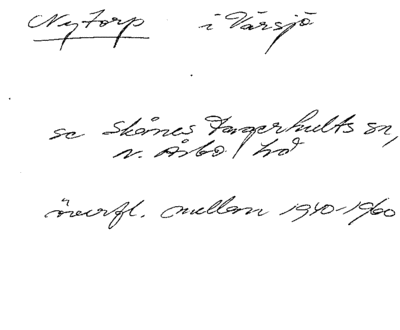 Nytorp i Värsjö
se Skånes Fagerhults sn,
n. Åsbo hd
överfl. mellan 1940-1960